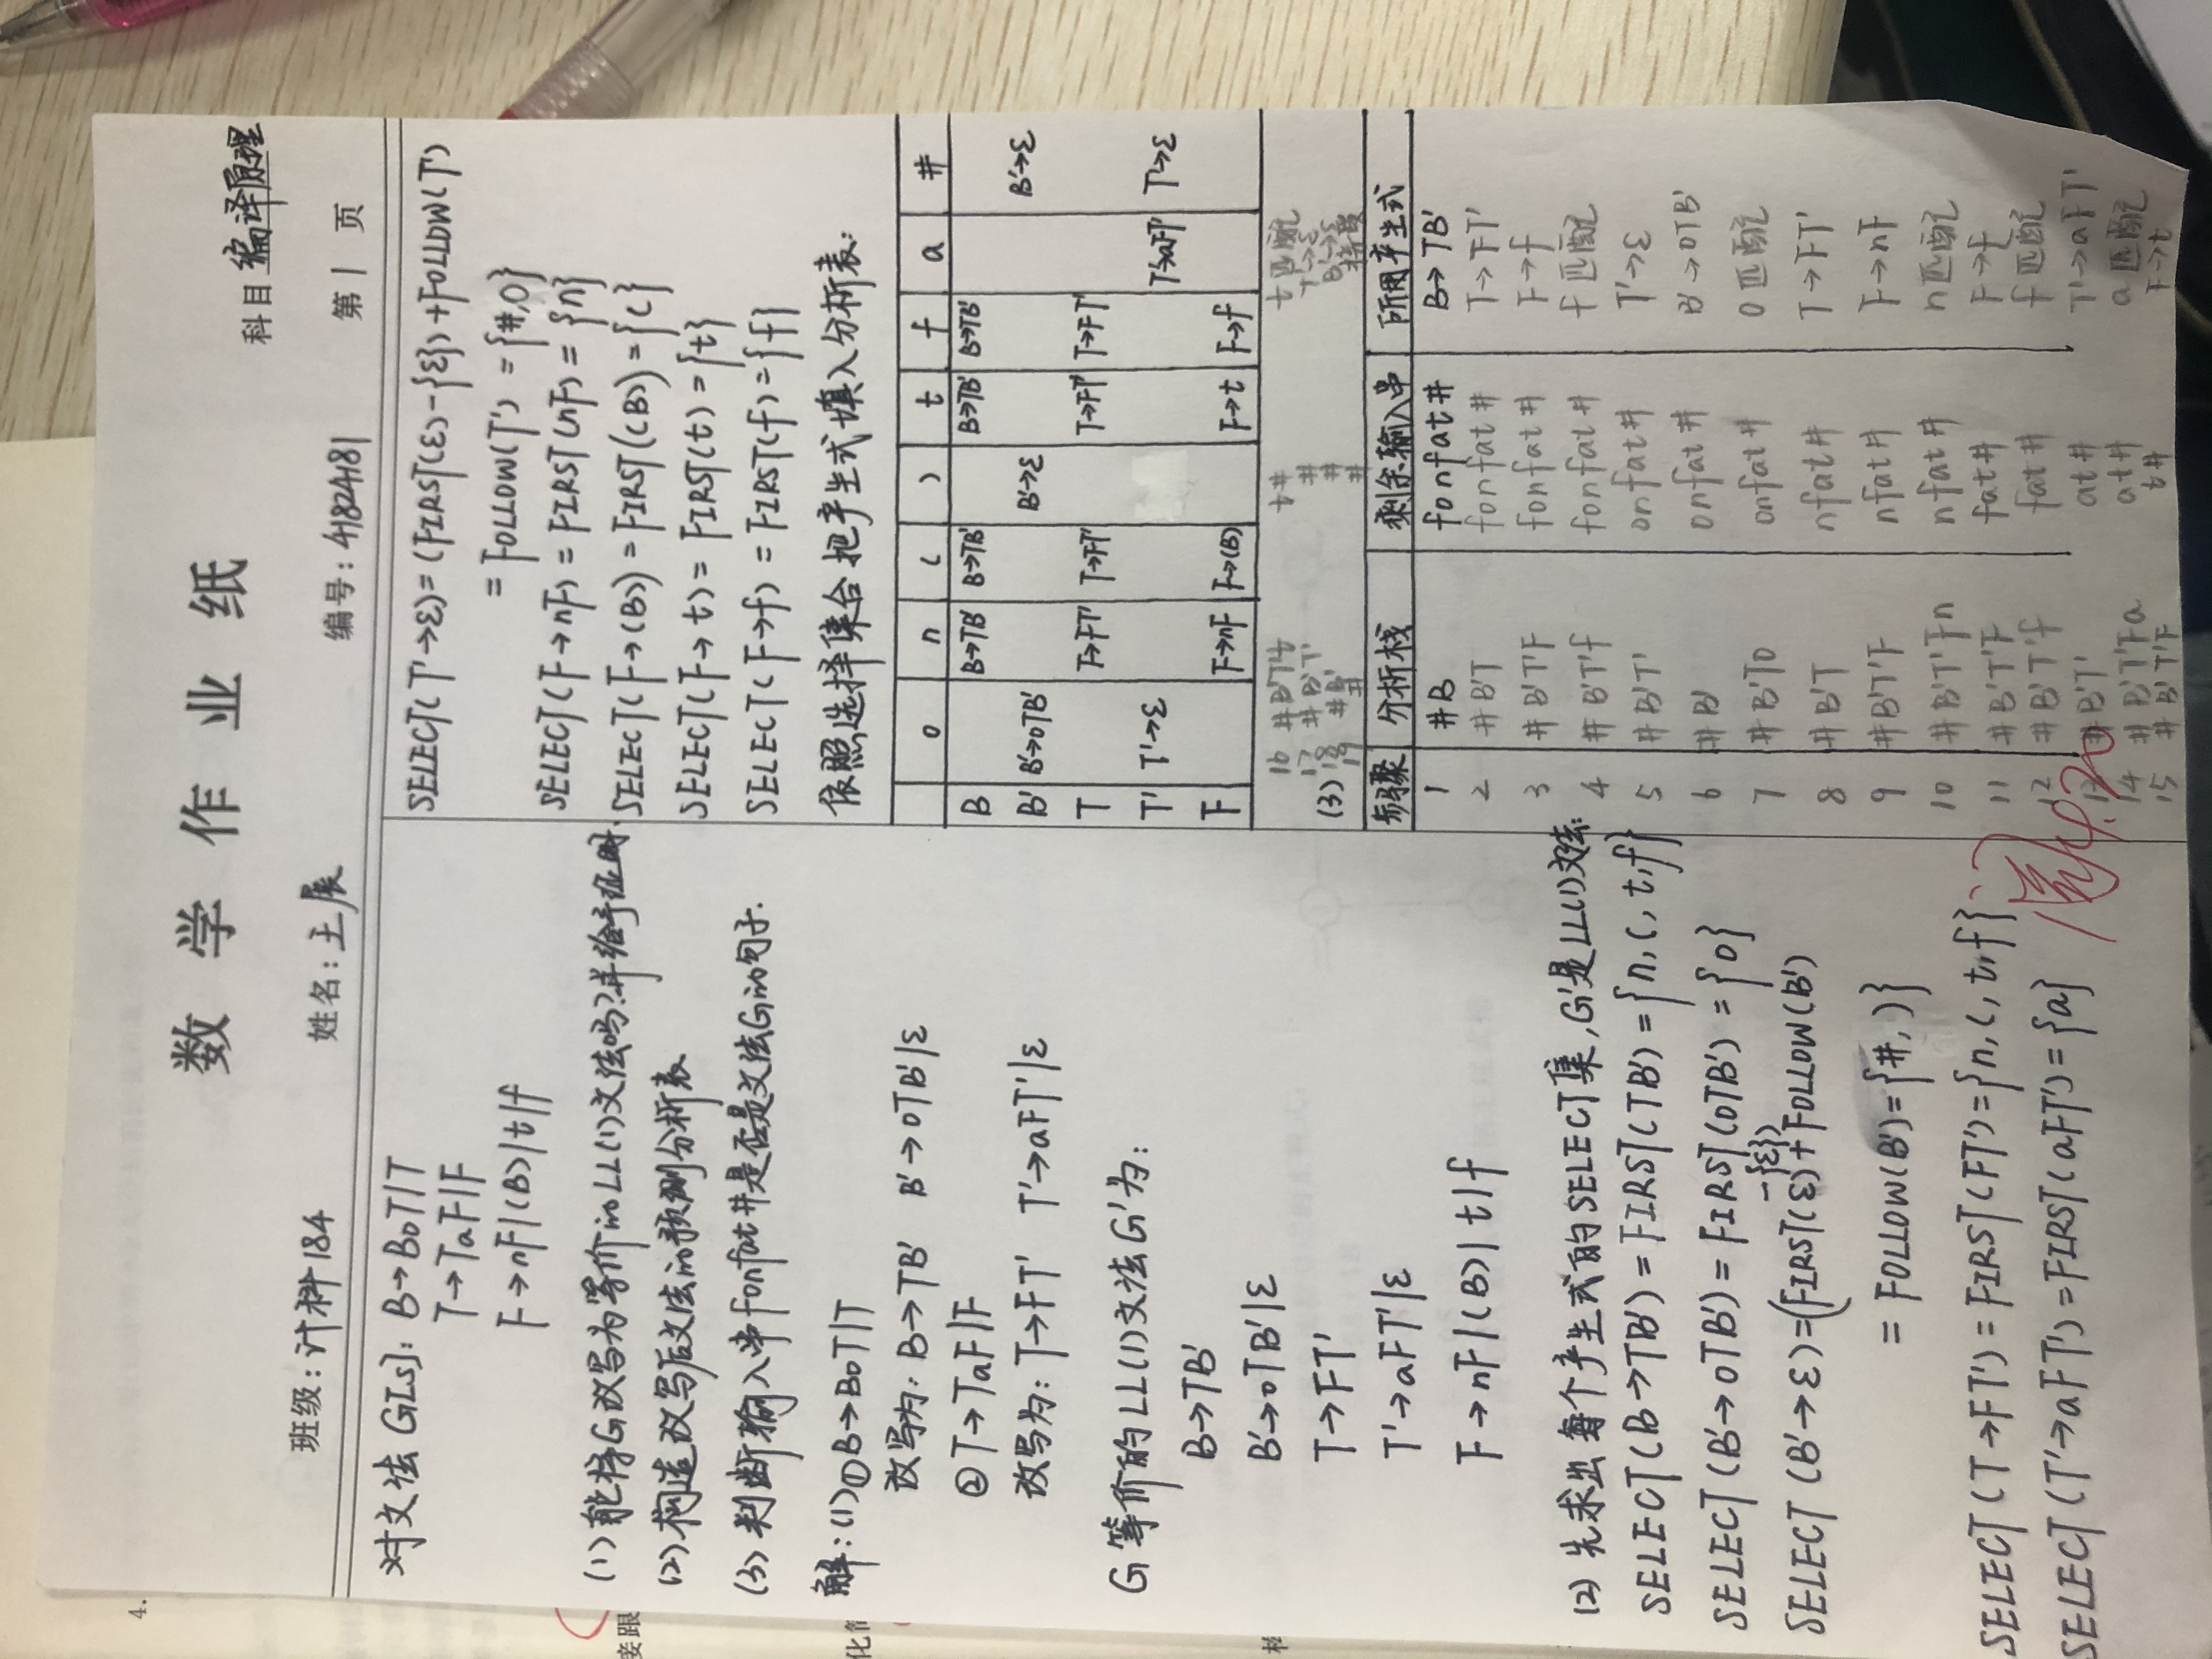 4.
数学作业纸
科目 编译原理
班级: 计科184 姓名: 王展 编号: 41824181 第 1 页
对文法 G[s]: B→BoT|T
T→TaF|F
F→nF|(B)|t|f
(1) 能将G改写为等价的LL(1)文法吗?并给予证明.
(2) 构造改写后文法的预测分析表
(3) 判断输入串fonfat#是否是文法G的句子.
解: (1) ① B→BoT|T
改写为: B→TB' B'→oTB'|ε
② T→TaF|F
改写为: T→FT' T'→aFT'|ε
G等价的LL(1)文法G'为:
B→TB'
B'→oTB'|ε
T→FT'
T'→aFT'|ε
F→nF|(B)|t|f
(2) 先求出每个产生式的SELECT集,G'是LL(1)文法:
SELECT(B→TB') = FIRST(TB') = {n, (, t, f}
SELECT(B'→oTB') = FIRST(oTB') = {o}
-{ε})
SELECT (B'→ε) = (FIRST(ε) + FOLLOW(B')
= FOLLOW(B') = {#, )}
SELECT (T→FT') = FIRST(FT') = {n, (, t, f}
SELECT (T'→aFT') = FIRST(aFT') = {a}
SELECT(T'→ε) = (FIRST(ε)-{ε}) + FOLLOW(T')
= FOLLOW(T') = {#,o}
SELECT(F→nF) = FIRST(nF) = {n}
SELECT(F→(B)) = FIRST((B)) = {(}
SELECT(F→t) = FIRST(t) = {t}
SELECT(F→f) = FIRST(f) = {f}
依照选择集合把产生式填入分析表:
o n ( ) t f a #
B B→TB' B→TB' B→TB' B→TB'
B' B'→oTB' B'→ε B'→ε
T T→FT' T→FT' T→FT' T→FT'
T' T'→ε T'→aFT' T'→ε
F F→nF F→(B) F→t F→f
(3)
步骤 分析栈 剩余输入串 所用产生式
1 #B fonfat# B→TB'
2 #B'T fonfat# T→FT'
3 #B'T'F fonfat# F→f
4 #B'T'f fonfat# f匹配
5 #B'T' onfat# T'→ε
6 #B' onfat# B'→oTB'
7 #B'To onfat# o匹配
8 #B'T nfat# T→FT'
9 #B'T'F nfat# F→nF
10 #B'T'Fn nfat# n匹配
11 #B'T'F fat# F→f
12 #B'T'f fat# f匹配
13 #B'T' at# T'→aFT'
14 #B'T'Fa at# a匹配
15 #B'T'F t# F→t
16 #B'T't t# t匹配
17 #B'T' # T'→ε
18 #B' # B'→ε
19 # # 接受
接跟